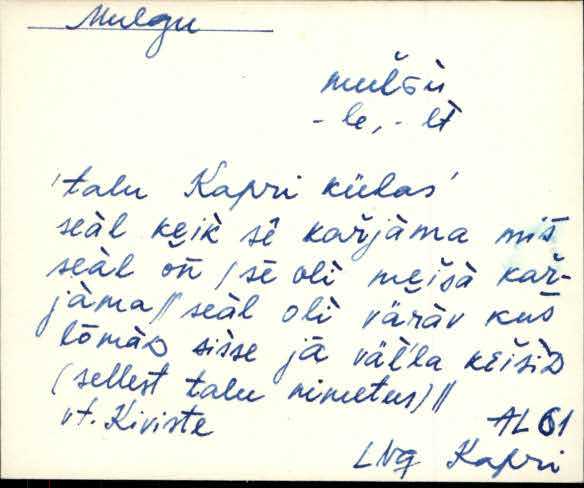 Mulgu
mulGù
-le, -lt
'talu Kapri külas'
seàl keìk sē̬ kařjàma mis̆
seàl oǹ / sē oli meìšà kař-
jàma // seàl oli väràv kus̆
lōmàD sisse jà väl'la keìšiD
(sellest talu nimetus) //
vt. Kiviste
AL 61
LNg Kapri